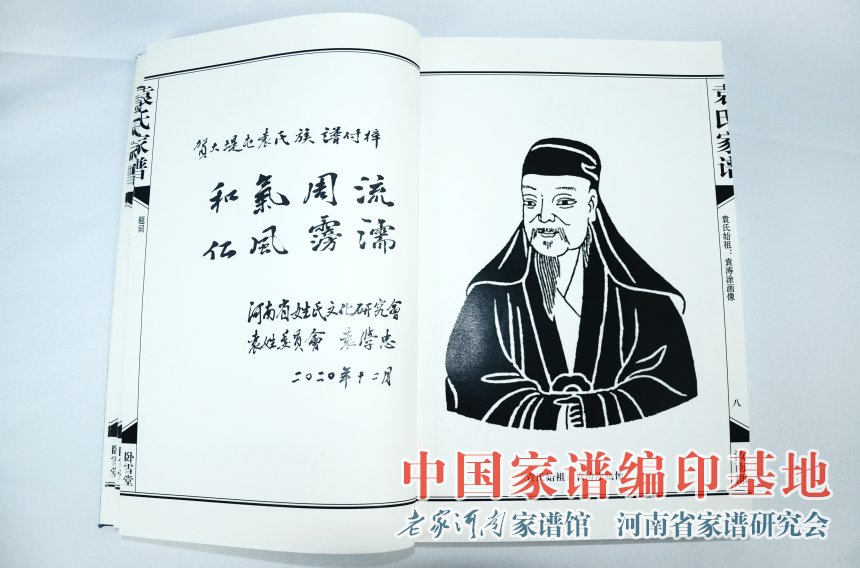 袁氏家谱
题词
卧雪堂
賀大堤 袁氏族譜付梓
和氣周流
仁風霶濡
河南省姓氏文化研究會
袁姓委員會 袁 忠
二〇二〇年十二月
袁氏家谱
袁氏始祖：袁涛涂画像
八
中国家谱编印基地
老家河南家谱馆 河南省家谱研究会